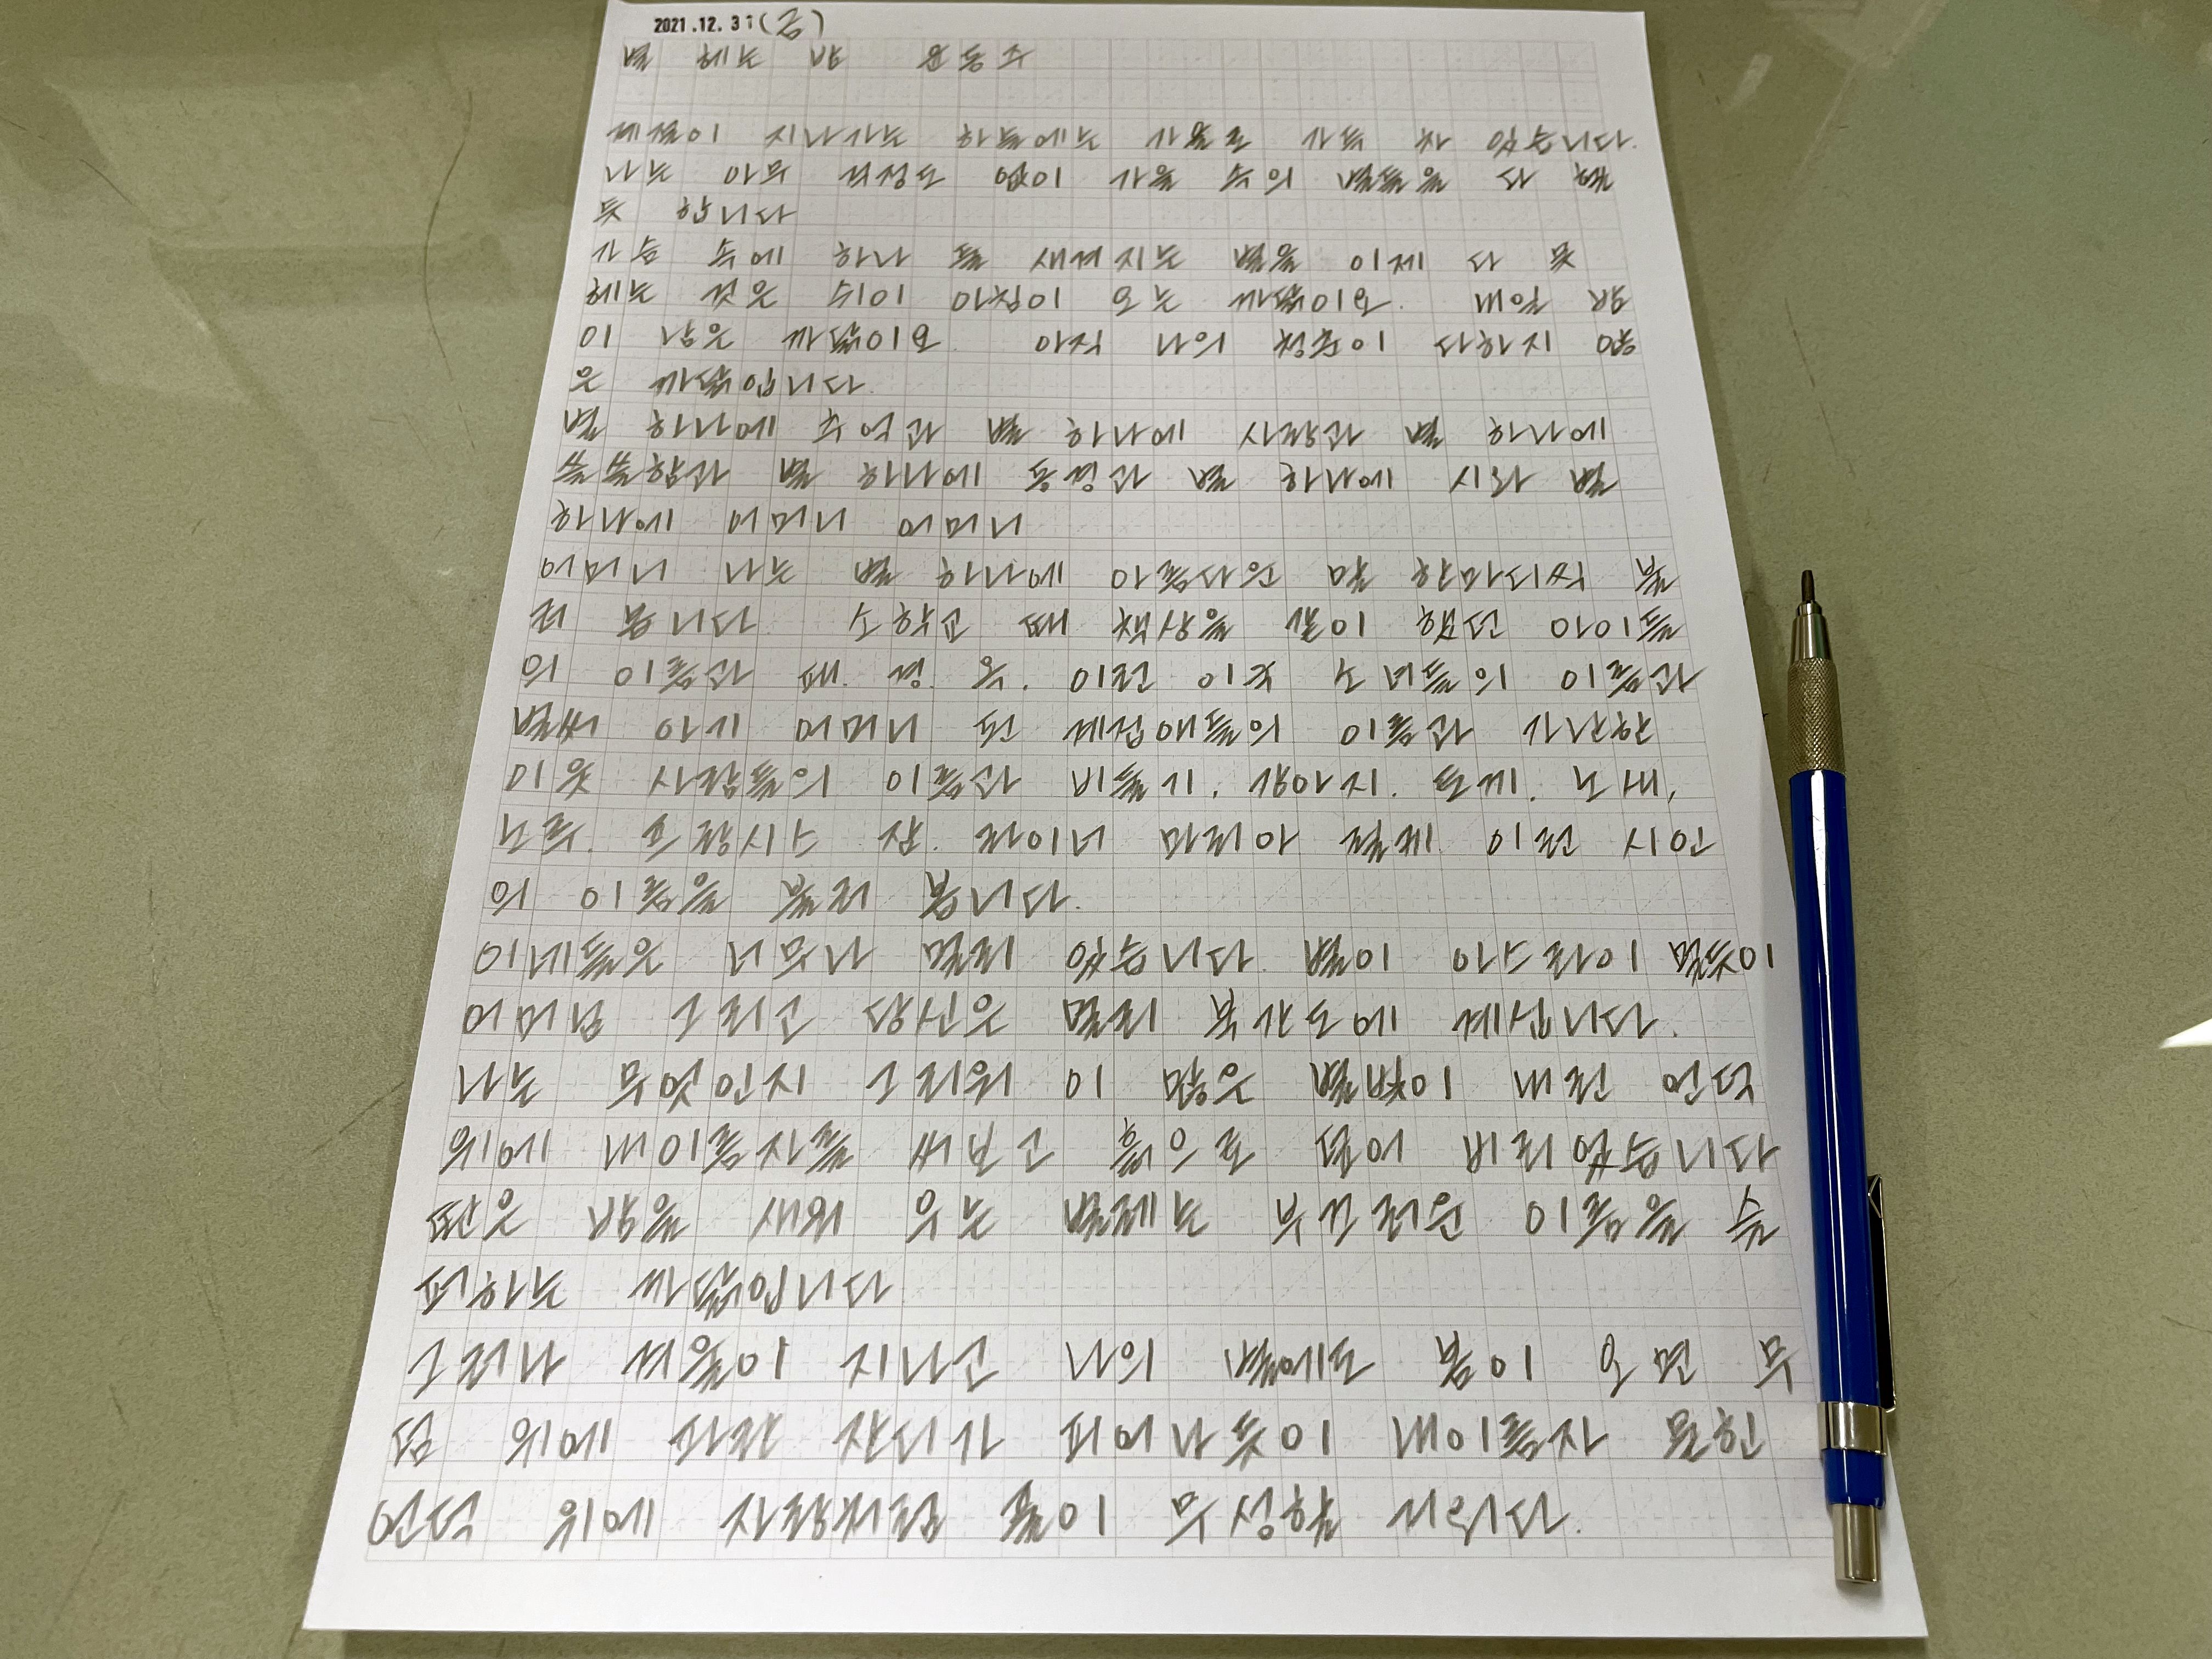 2021.12.31(금)
별 헤는 밤 윤동주
계절이 지나가는 하늘에는 가을로 가득 차 있습니다.
나는 아무 걱정도 없이 가을 속의 별들을 다 헬
듯 합니다
가슴 속에 하나 둘 새겨지는 별을 이제 다 못
헤는 것은 쉬이 아침이 오는 까닭이요. 내일 밤
이 남은 까닭이요. 아직 나의 청춘이 다하지 않
은 까닭입니다.
별 하나에 추억과 별 하나에 사랑과 별 하나에
쓸쓸함과 별 하나에 동경과 별 하나에 시와 별
하나에 어머니 어머니
어머니 나는 별 하나에 아름다운 말 한마디씩 불
러 봅니다 소학교 때 책상을 같이 했던 아이들
의 이름과 패. 경. 옥. 이런 이국 소녀들의 이름과
벌써 아기 어머니 된 계집애들의 이름과 가난한
이웃 사람들의 이름과 비둘기, 강아지. 토끼. 노새,
노루. 프랑시스 잠. 라이너 마리아 릴케 이런 시인
의 이름을 불러 봅니다.
이네들은 너무나 멀리 있습니다. 별이 아스라이 멀듯이
어머님 그리고 당신은 멀리 북간도에 계십니다.
나는 무엇인지 그리워 이 많은 별빛이 내린 언덕
위에 내이름자를 써보고 흙으로 덮어 버리었습니다
딴은 밤을 새워 우는 벌레는 부끄러운 이름을 슬
퍼하는 까닭입니다.
그러나 겨울이 지나고 나의 별에도 봄이 오면 무
덤 위에 파란 잔디가 피어나듯이 내이름자 묻힌
언덕 위에 자랑처럼 풀이 무성할 게외다.